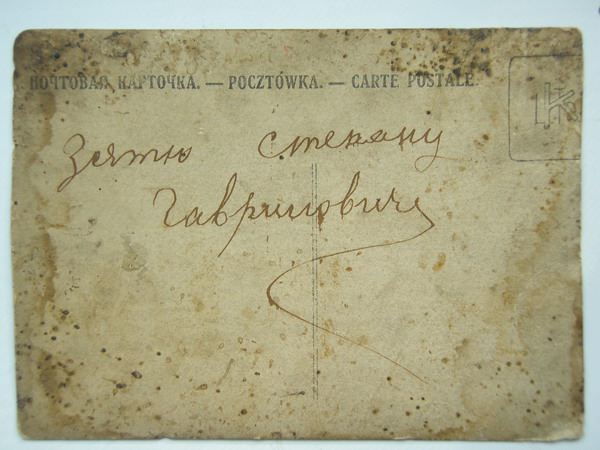 ПОЧТОВАЯ КАРТОЧКА. — POCZTÓWKA. — CARTE POSTALE.
Зятю Степану
Гавриловичу